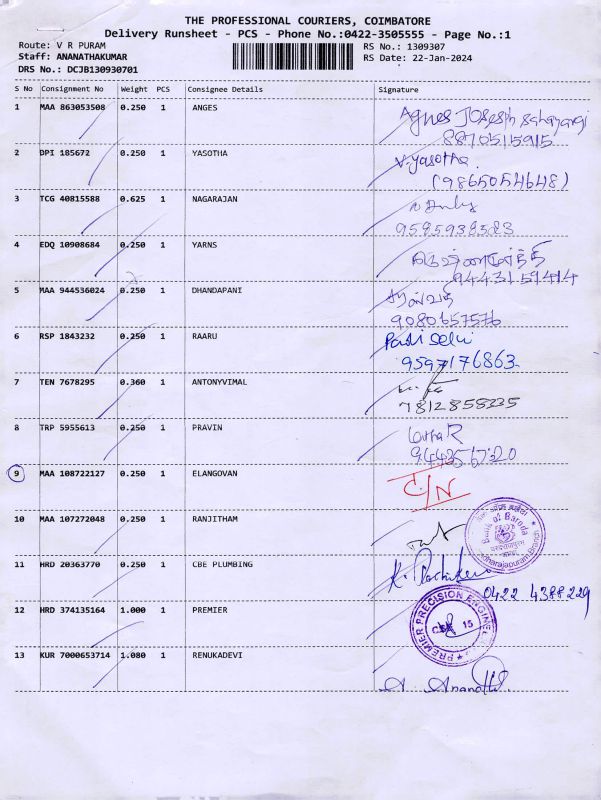 THE PROFESSIONAL COURIERS, COIMBATORE
Delivery Runsheet - PCS - Phone No.:0422-3505555 - Page No.:1
Route: V R PURAM
RS No.: 1309307
Staff: ANANATHAKUMAR
RS Date: 22-Jan-2024
DRS No.: DCJB130930701
S No Consignment No Weight PCS Consignee Details Signature
1 MAA 863053508 0.250 1 ANGES Agnes Joseph
8870515915
2 DPI 185672 0.250 1 YASOTHA V.Yasotha
(9865054648)
3 TCG 40815588 0.625 1 NAGARAJAN
9595938583
4 EDQ 10908684 0.250 1 YARNS
9443151414
5 MAA 944536024 0.250 1 DHANDAPANI
9080657576
6 RSP 1843232 0.250 1 RAARU
9597176863
7 TEN 7678295 0.360 1 ANTONYVIMAL
7812858335
8 TRP 5955613 0.250 1 PRAVIN
9443567320
9 MAA 108722127 0.250 1 ELANGOVAN C/N
10 MAA 107272048 0.250 1 RANJITHAM
Bank of Baroda
11 HRD 20363770 0.250 1 CBE PLUMBING
0422 4388229
12 HRD 374135164 1.000 1 PREMIER
PREMIER PRECISION ENGINEE
CBE 15
13 KUR 7000653714 1.080 1 RENUKADEVI